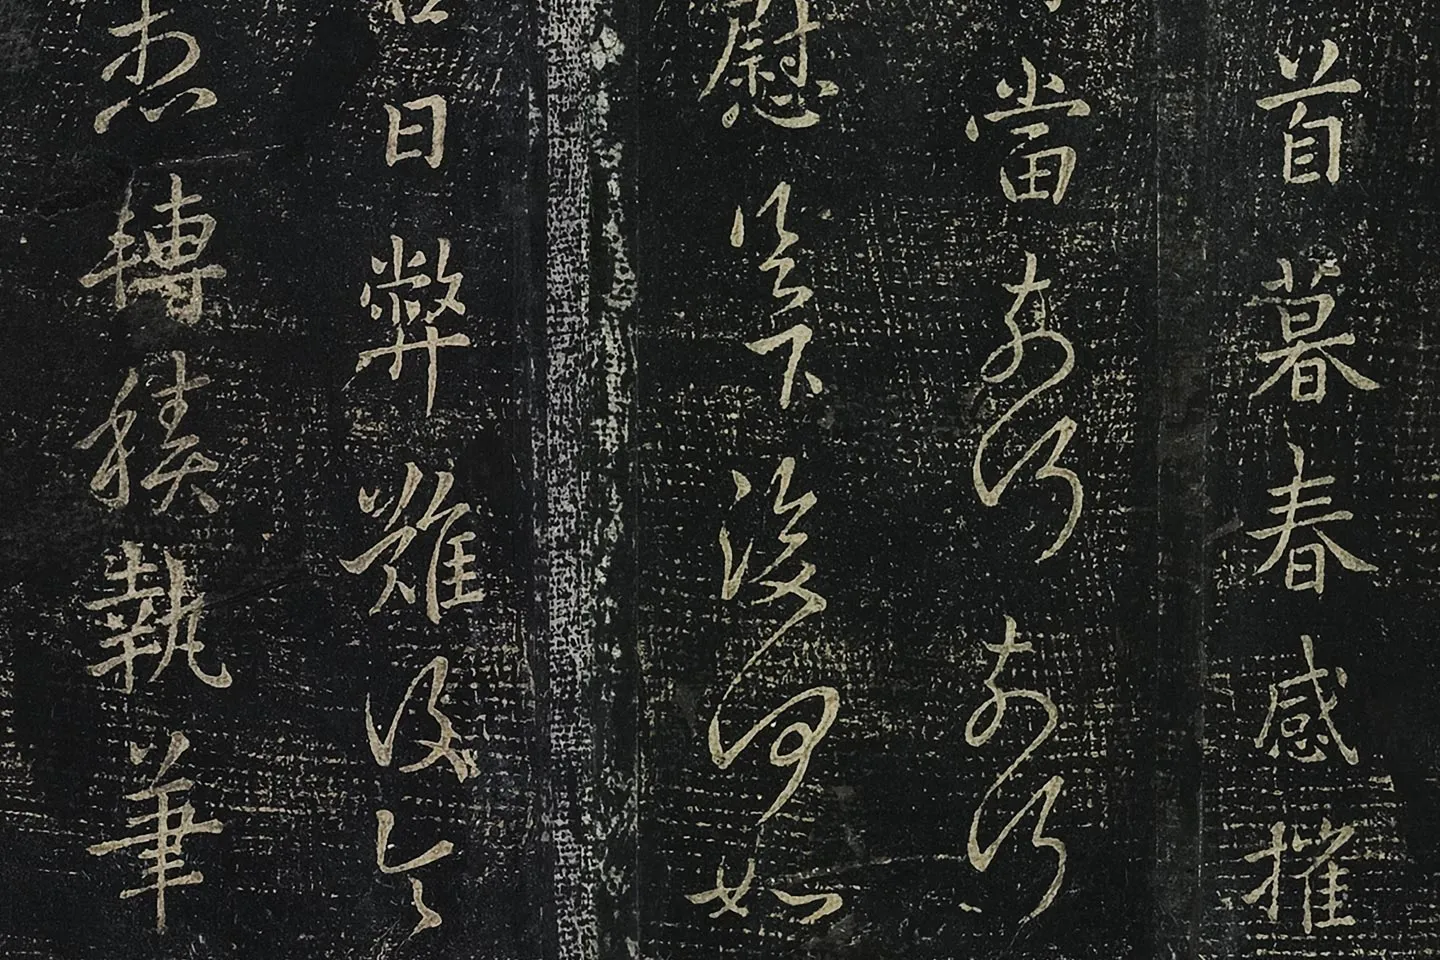 首暮春感摧
當奈何奈何
慰足下復何如
日弊難復
轉積執筆